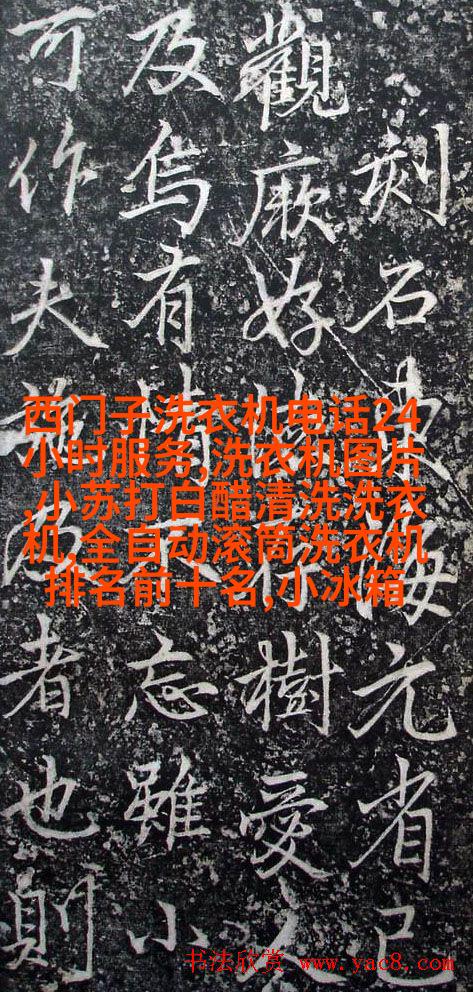 刻石海元省己
觀厥好樹愛人
及烏有情不忘雖小
可作夫為者也則
西门子洗衣机电话24
小时服务,洗衣机图片
,小苏打白醋清洗洗衣
机,全自动滚筒洗衣机
排名前十名,小冰箱
书法欣赏 www.yac8.com